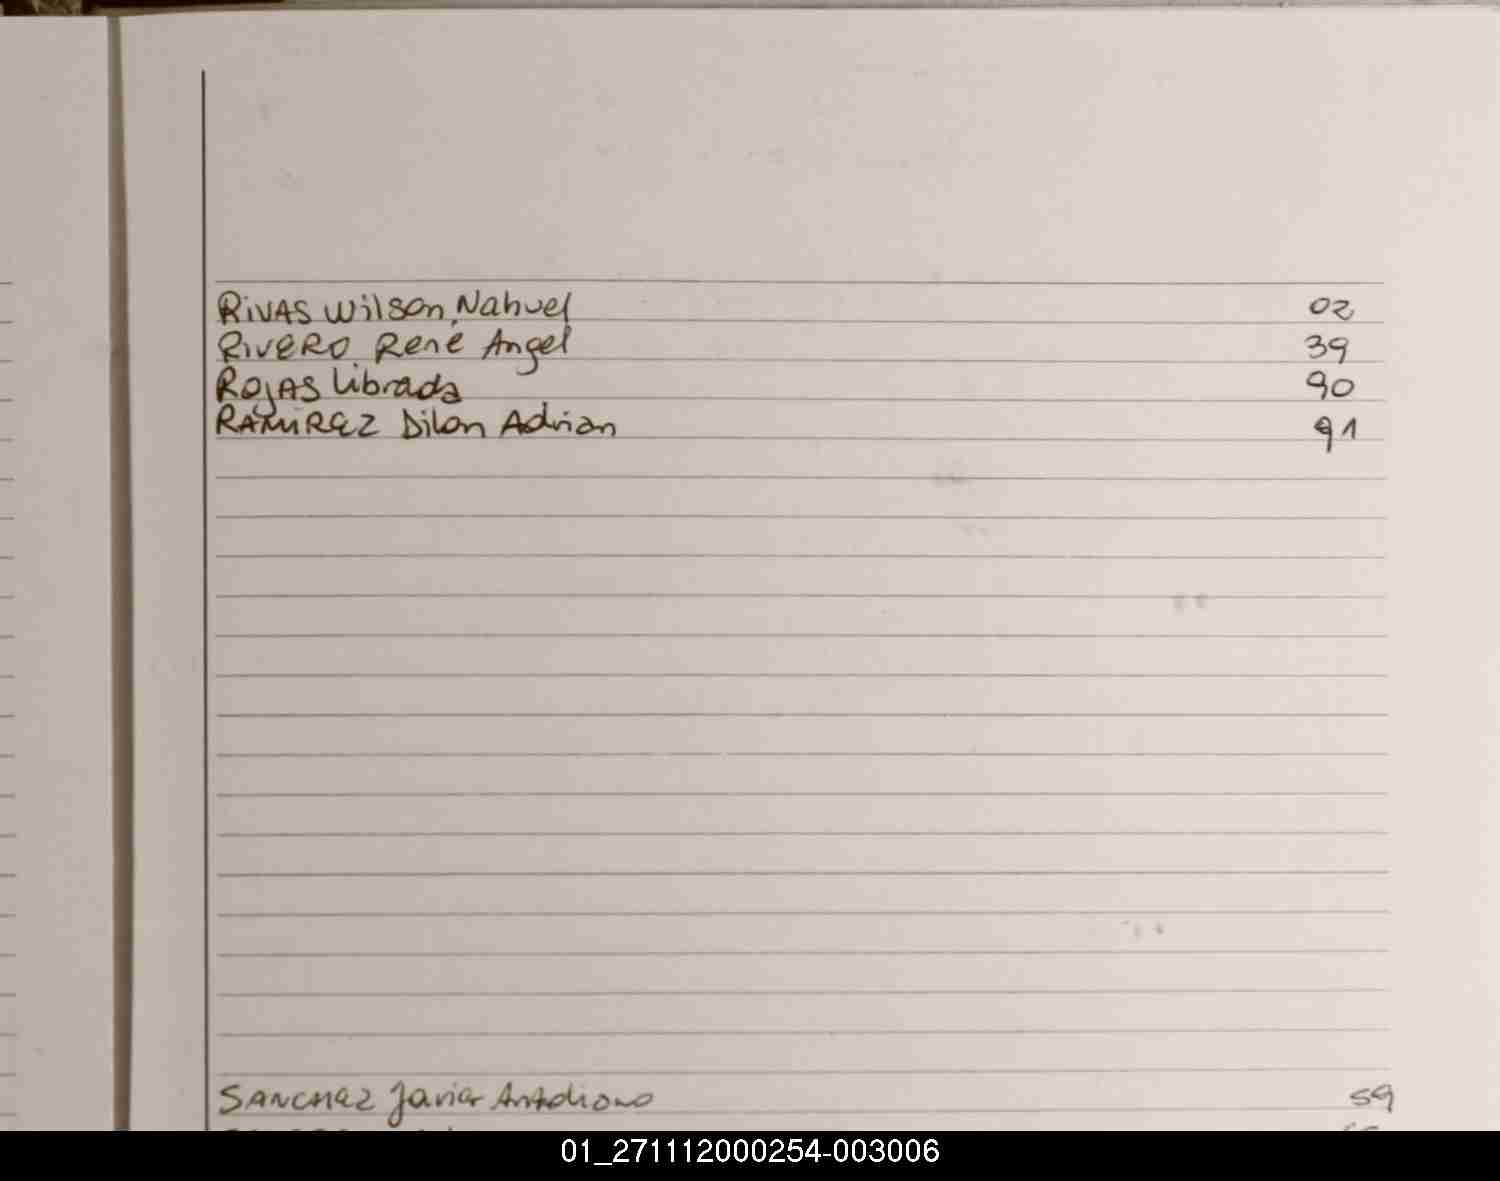 RIVAS Wilson Nahuel 02
RIVERO René Angel 39
ROJAS Librada 90
RAMIREZ Dilan Adrian 91
SANCHEZ Javier 59
01_271112000254-003006